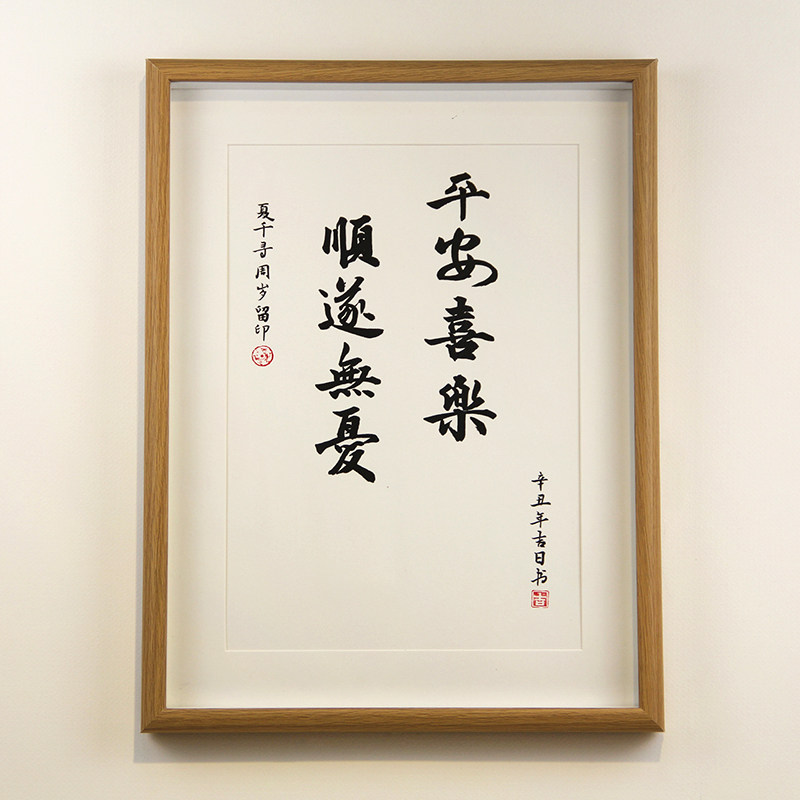 平安喜樂
順遂無憂
夏千寻周岁留印
辛丑年吉日书
吉